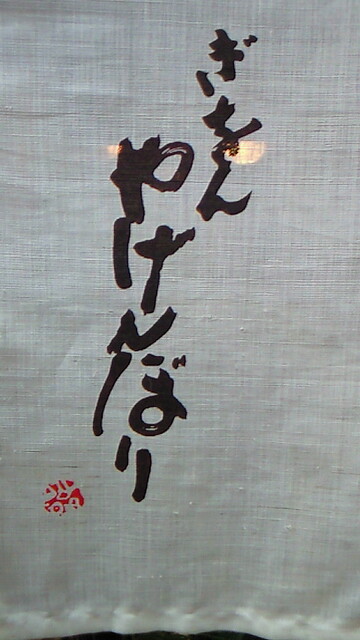 ぎをん
やげんぼり